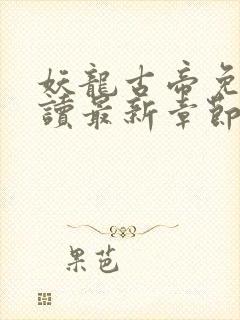 妖龍古帝免
讀最新章節
果芭